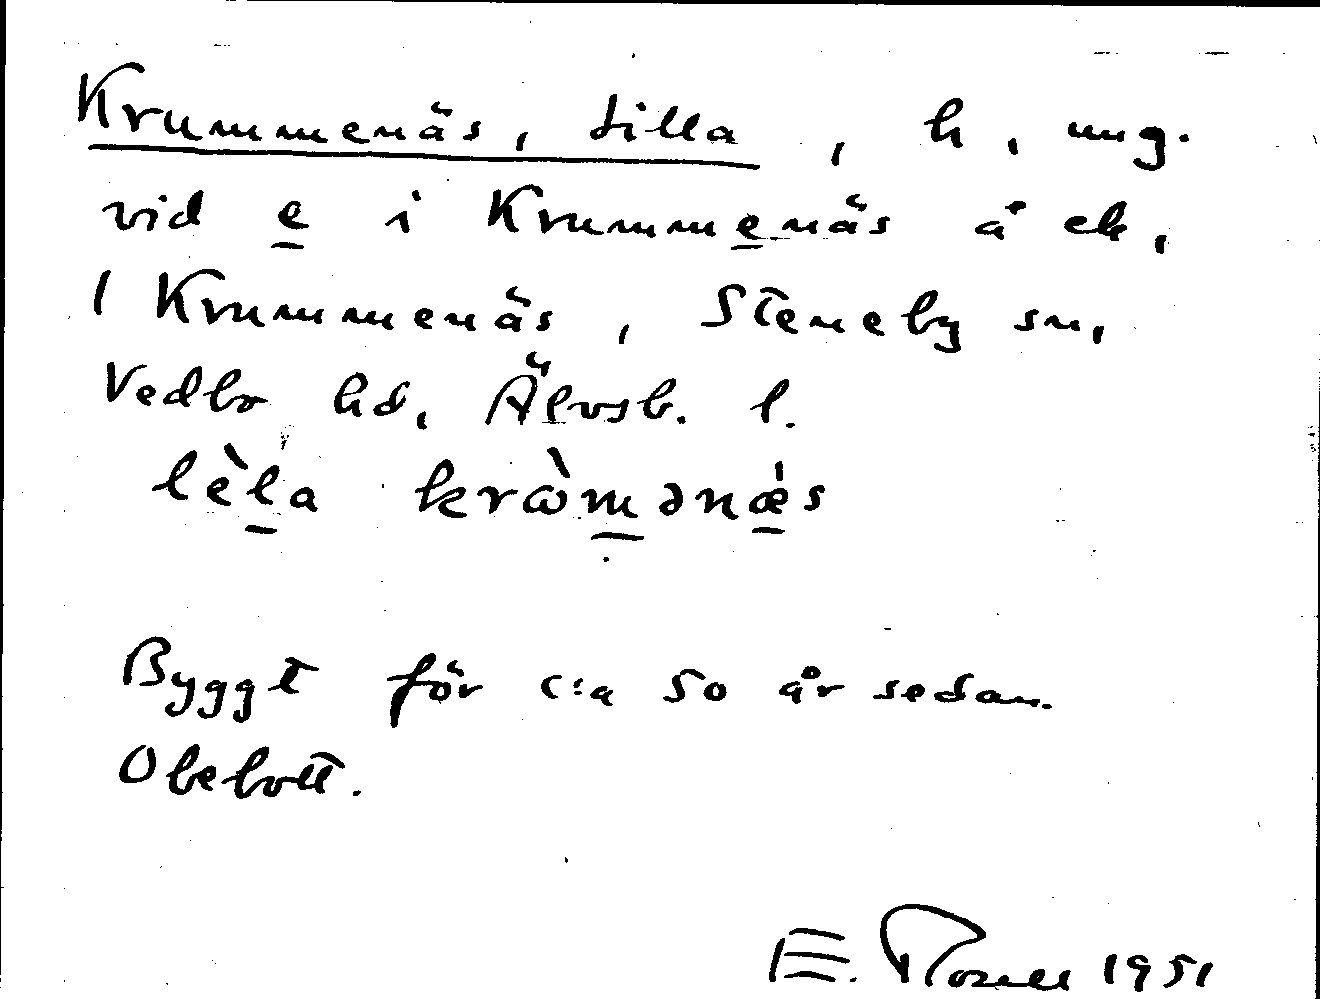 Krummenäs, Lilla, h, ung.
vid e i Krummenäs å ek,
1 Krummenäs, Steneby sn,
Vedbo hd, Älvsb. l.
lèla kròmənǽs
Byggt för c:a 50 år sedan.
Obebott.
E. 1951